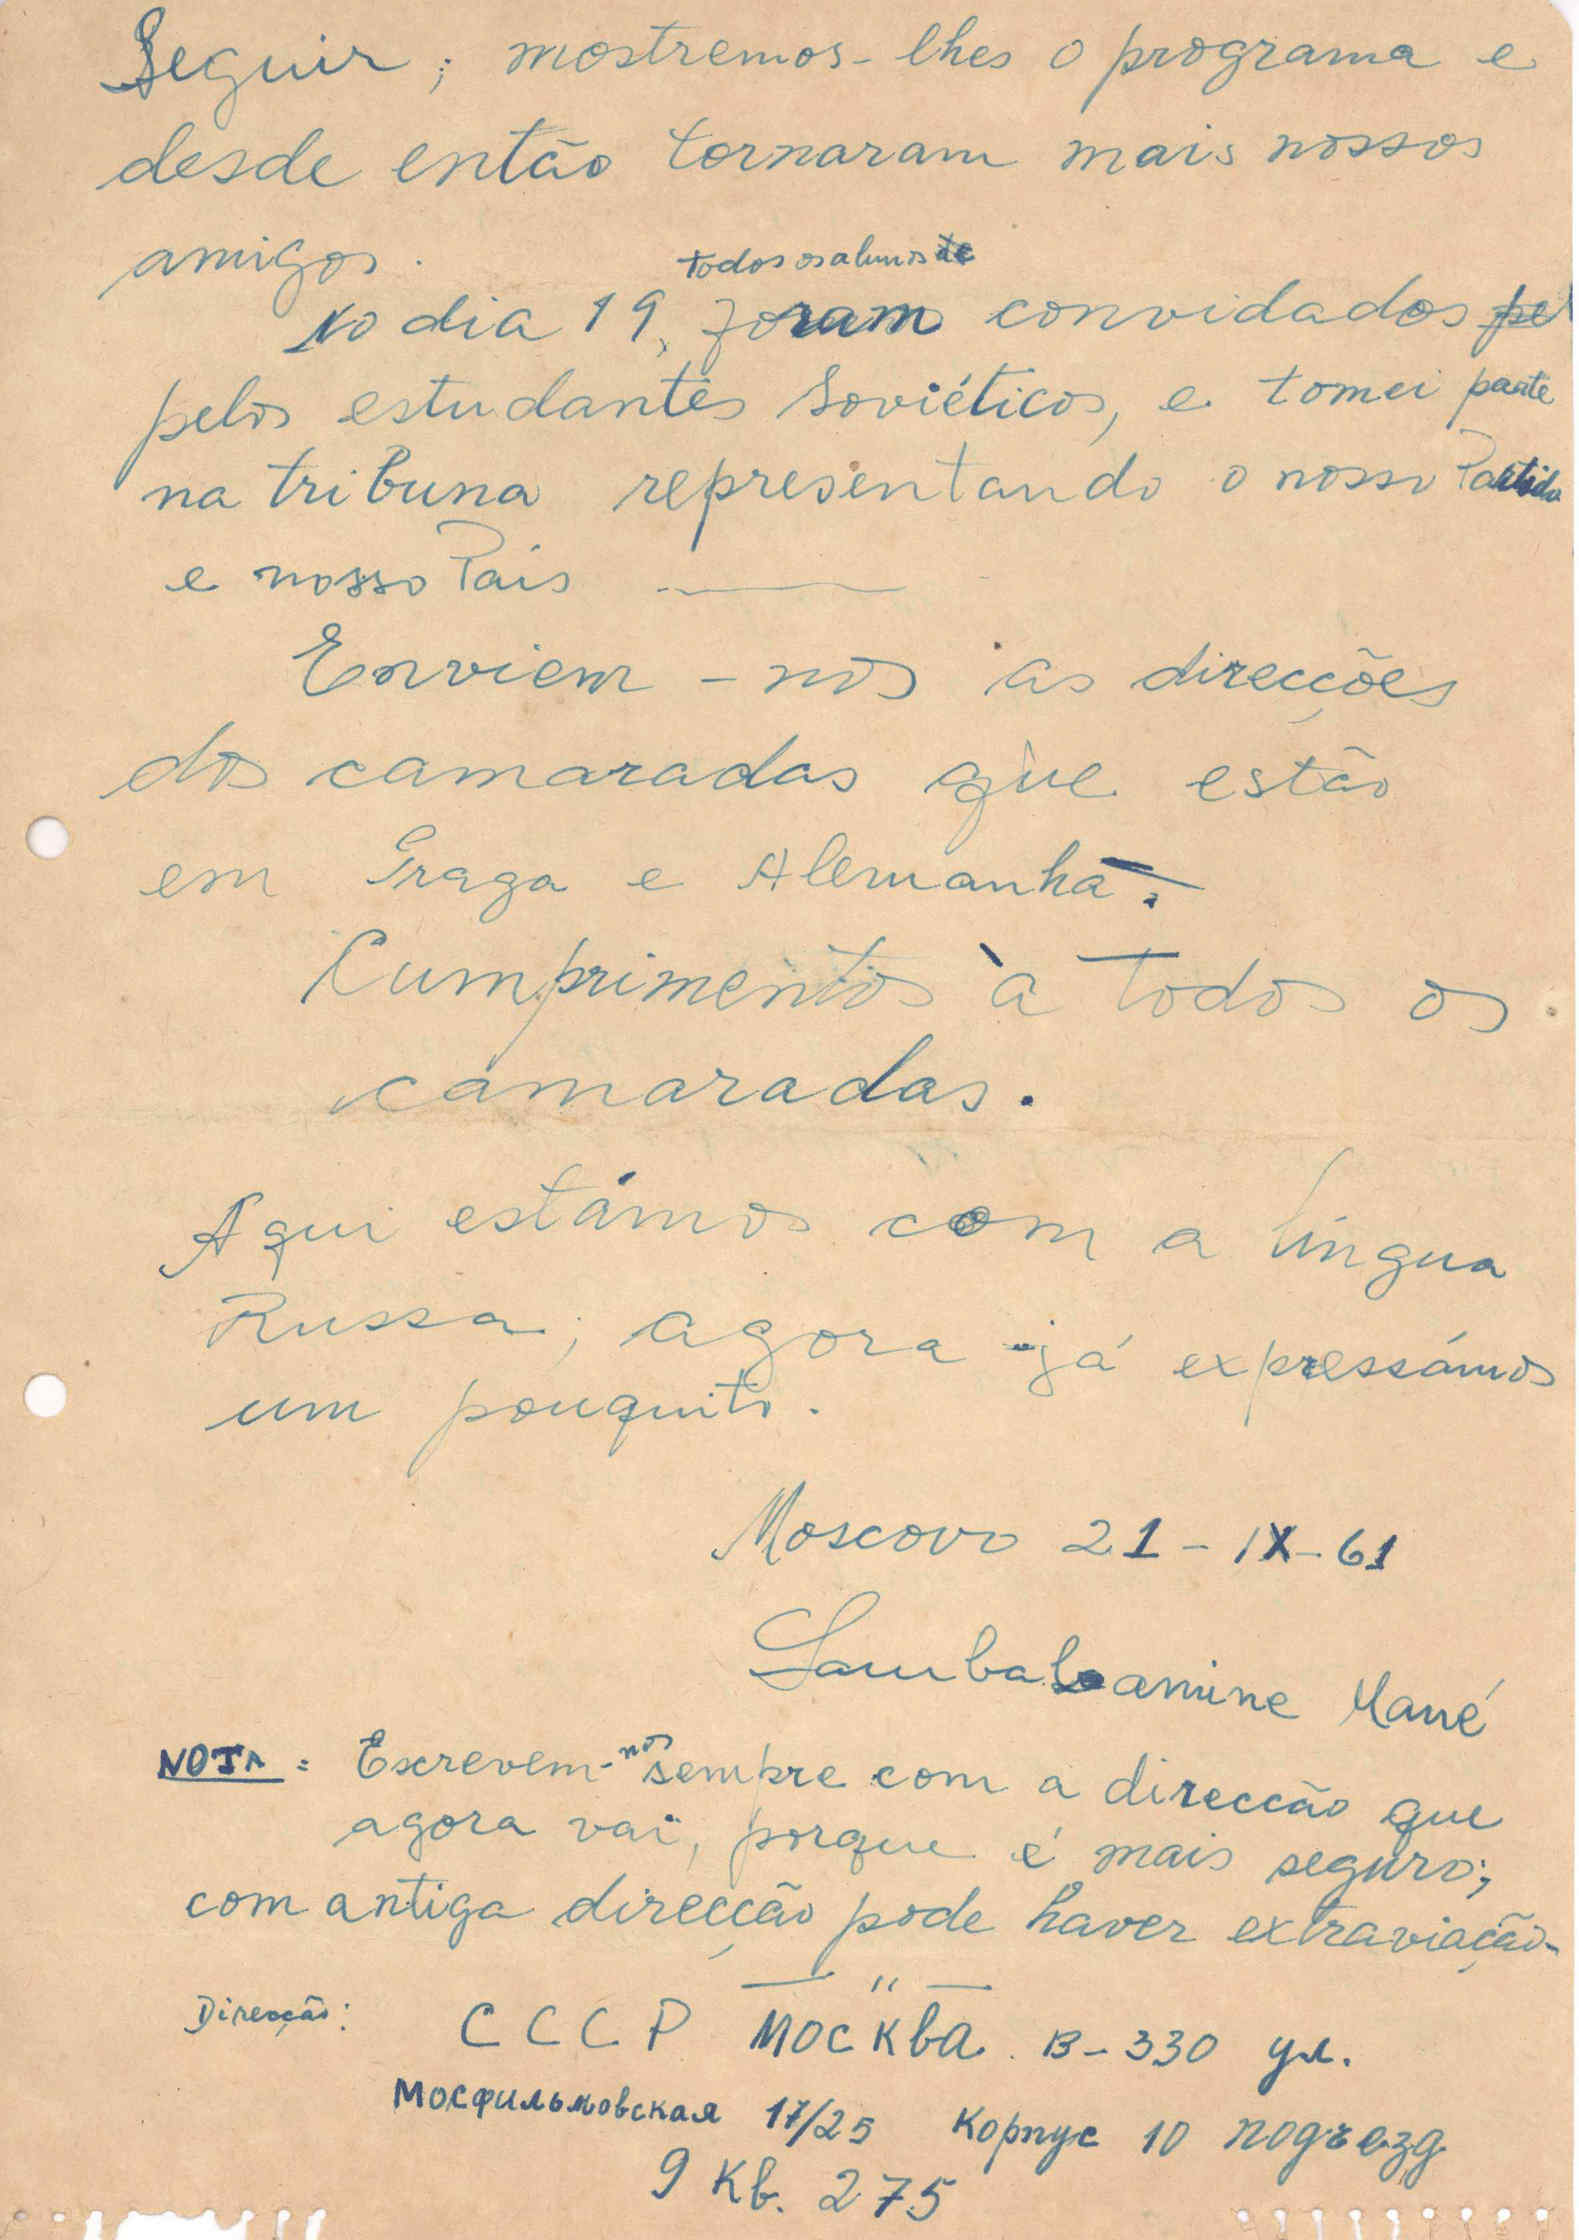 Seguir; mostremos-lhes o programa e
desde então tornaram mais nossos
amigos.
todos os alunos de
No dia 19, foram convidados pel
pelos estudantes Soviéticos, e tomei parte
na tribuna representando o nosso Partido
e nosso País
Enviem-nos as direcções
dos camaradas que estão
em Praga e Alemanha.
Cumprimentos à todos os
camaradas.
Aqui estámos com a língua
Russa; agora já expressámos
um pouquito.
Moscovo 21-IX-61
Samba Lamine Mané
NOTA: Escrevem-nos sempre com a direccão que
agora vai, porque é mais seguro;
com antiga direcção pode haver extraviação-
— " —
Direcção: СССР Москва. В-330 ул.
Мосфильмовская 17/25 корпус 10 подъезд
9 кв. 275